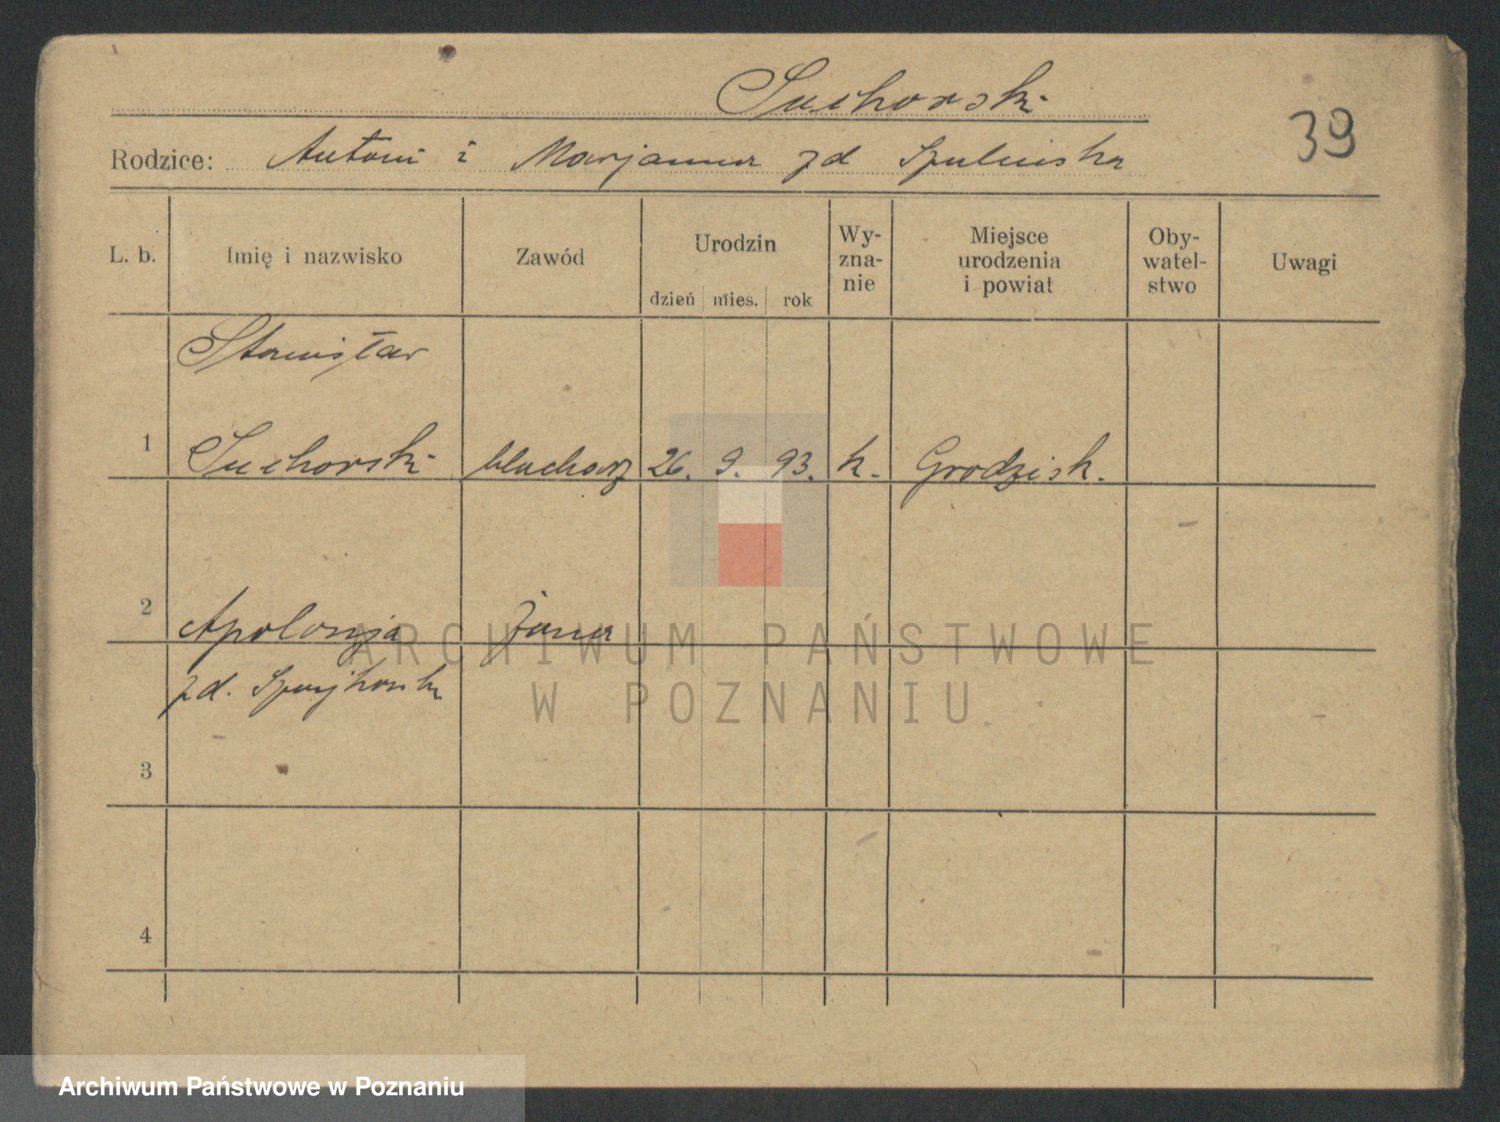 Suchorski
39
Rodzice: Antoni i Marjanna zd
L. b. Imię i nazwisko Zawód Urodzin Wy-zna-nie Miejsce urodzenia i powiat Oby-watel-stwo Uwagi
dzień mies. rok
Stanisław
1 Suchorski blacharz 26. 9. 93. k. Grodzisk.
2 Apolonja żona
zd.
3
4
ARCHIWUM PAŃSTWOWE
W POZNANIU
Archiwum Państwowe w Poznaniu